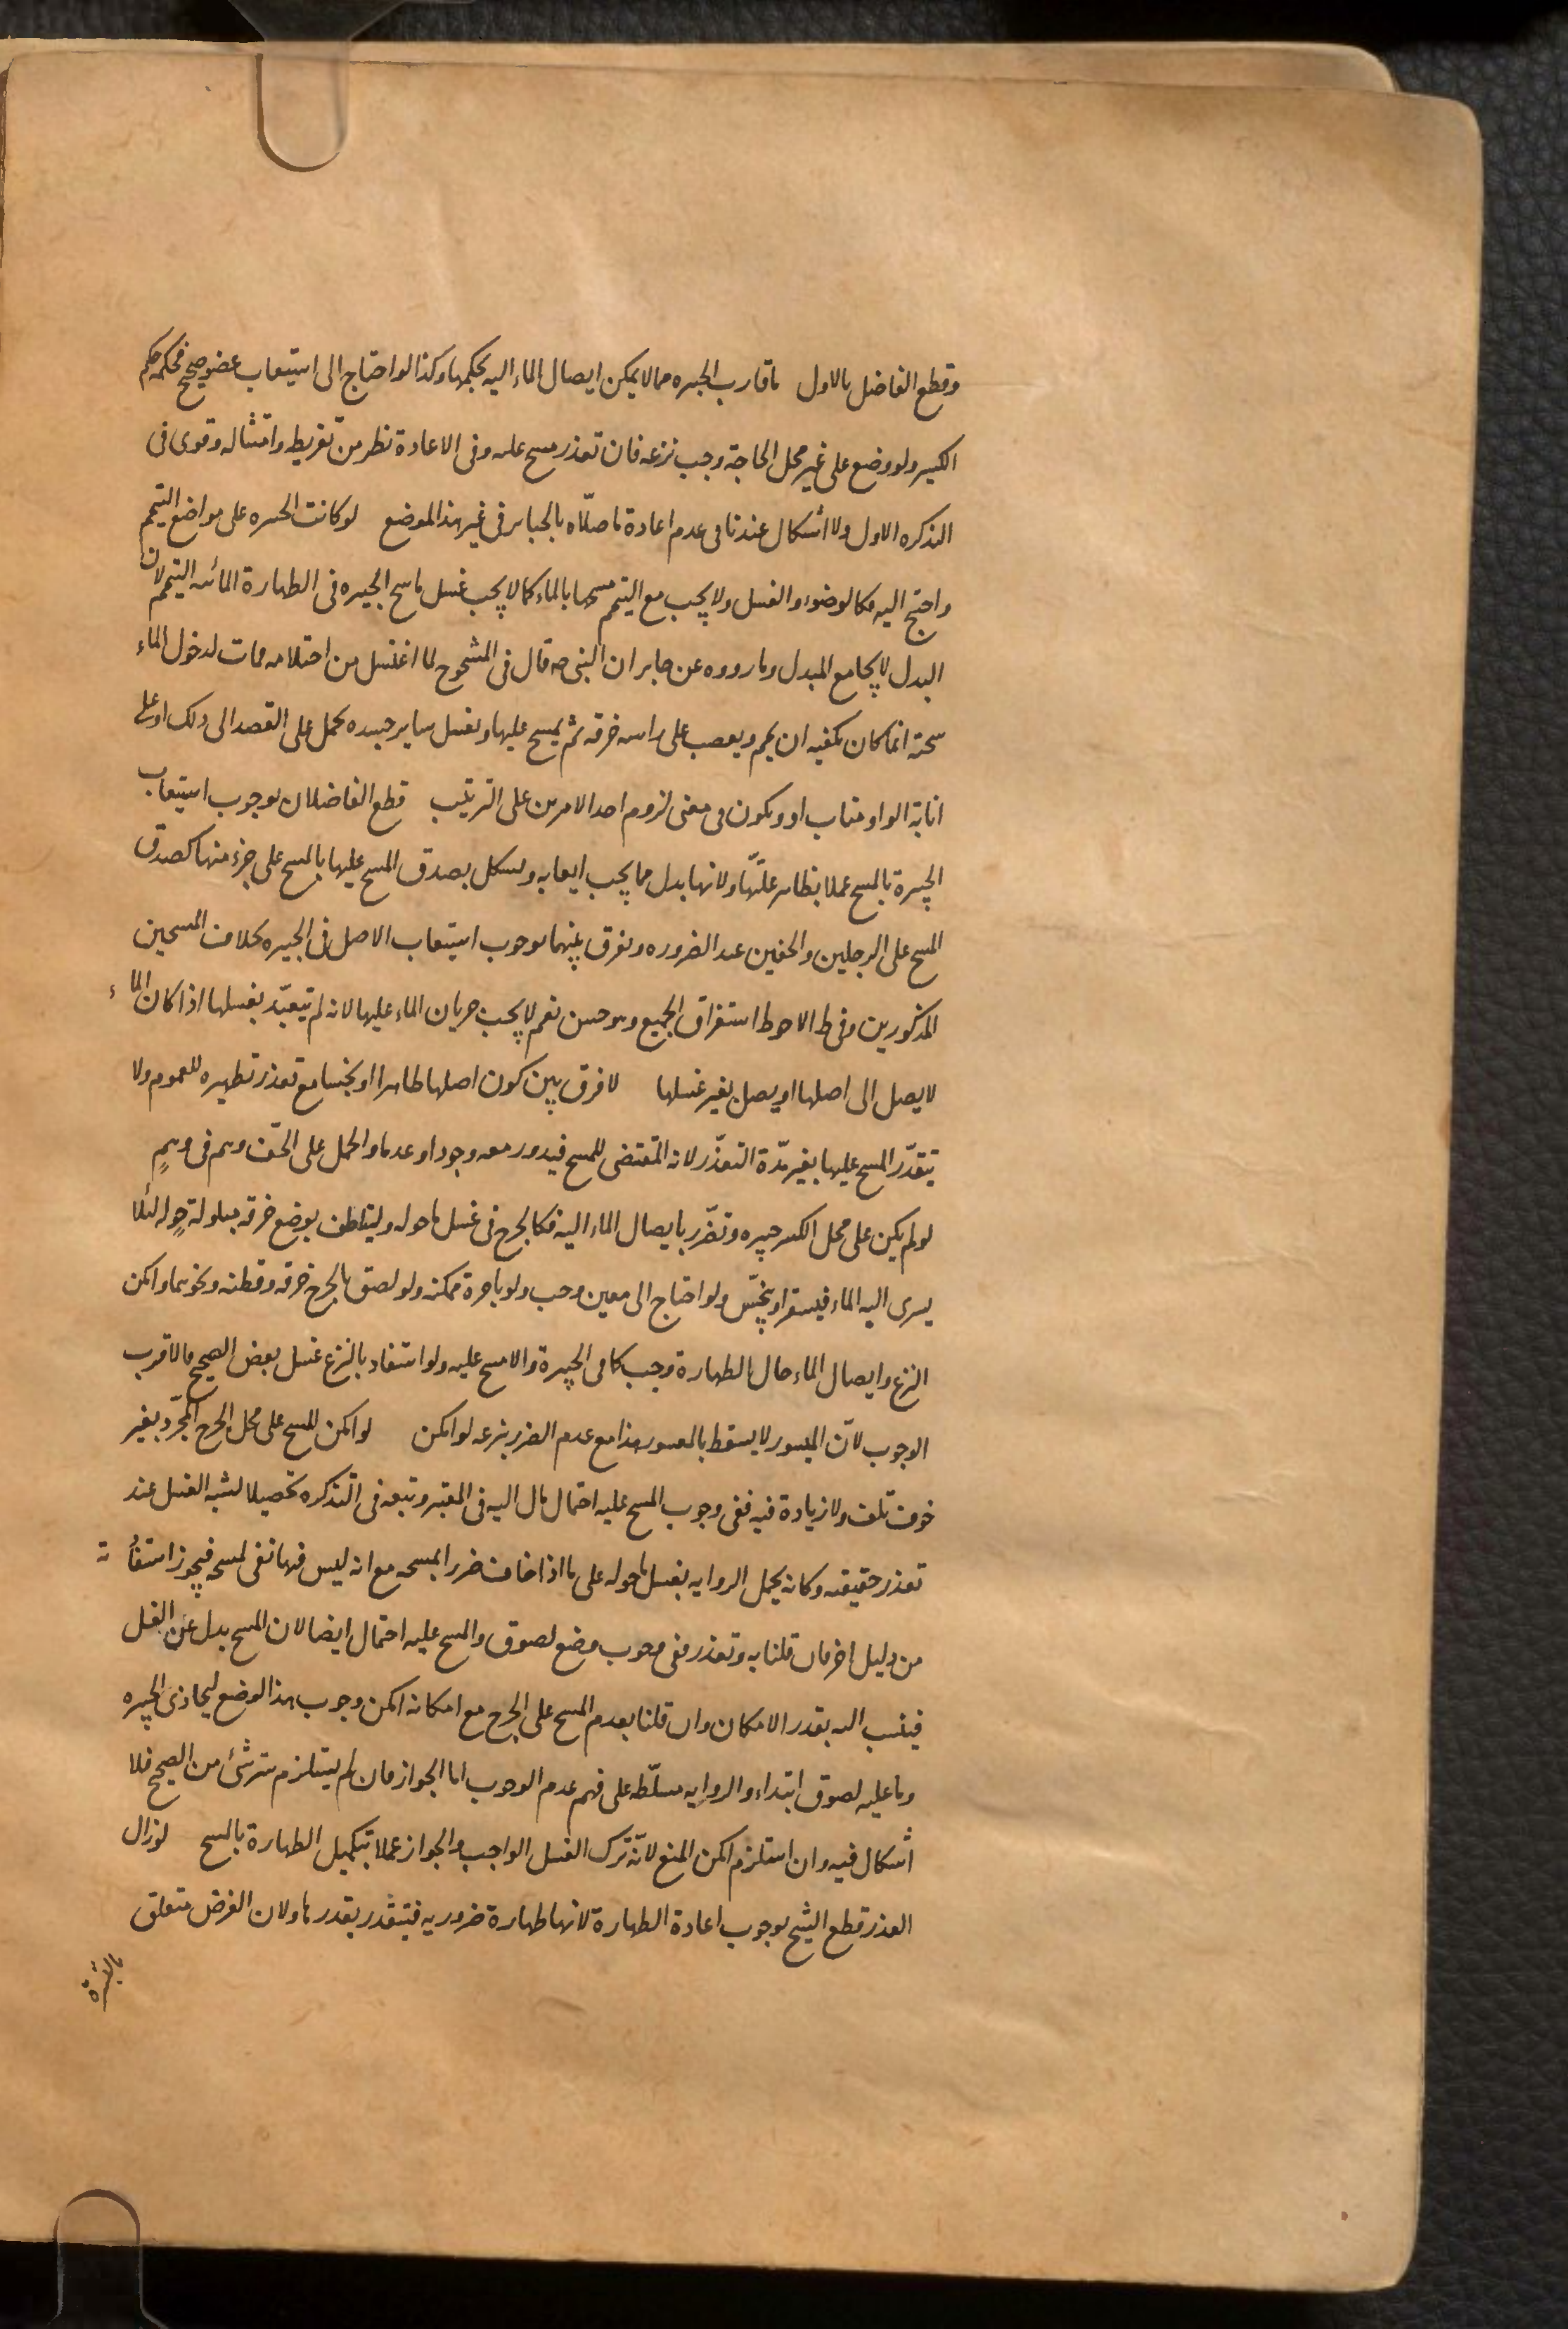 وقطع الفاضل بالاول ما قارب الجبيره مما لا يمكن ايصال الماء اليه بحكمها وكذا لو احتاج الى استيعاب عضو صحيح فحكمه حكم
الكسير ولو وضع على غير محل الحاجة وجب نزعه فان تعذر مسح عليه وفى الاعادة نظر من تفريطه وامتثاله وقوى فى
التذكره الاول ولا أشكال عندنا فى عدم اعادة ما صلّاه بالجباير فى غير هذا الموضع لو كانت الجبيره على مواضع التيمم
واحتج اليه فكالوضوء والغسل ولا يجب مع التيمم مسحها بالماء كما لا يجب غسل ماسح الجبيره فى الطهارة المائيه التيمم لان
البدل لا يجامع المبدل وما رووه عن جابر ان النبى صه قال فى المشجوج لما اغتسل من احتلامه فمات لدخول الماء
شجته انما كان يكفيه ان يتيمم ويعصب على راسه خرقه ثم يمسح عليها ويغسل ساير جسده يحمل على القصد الى ذلك او على
انابة الواو مناب او ويكون فى معنى لزوم احد الامرين على الترتيب قطع الفاضلان بوجوب استيعاب
الجبيرة بالمسح عملا بظاهر عليها ولانها بدل مما يجب ايعابه ويشكل بصدق المسح عليها بالمسح على جزء منها كصدق
المسح على الرجلين والخفين عند الضروره ويفرق بينهما بوجوب استيعاب الاصل فى الجبيره بخلاف المسحين
المذكورين وفى ط الاحوط استغراق الجميع وهو حسن نعم لا يجب جريان الماء عليها لانه لم يتعبّد بغسلها اذا كان الماء
لا يصل الى اصلها او يصل بغير غسلها لا فرق بين كون اصلها طاهرا او نجسا مع تعذر تطهيره للعموم ولا
يتقدّر المسح عليها بغير مدّة التعذّر لانه المقتضى للمسح فيدور معه وجودا وعدما والحمل على الخف وهم فى وهمٍ
لو لم يكن على محل الكسر جبيره وتضّرر بايصال الماء اليه فكالجرح فى غسل ما حوله وليتلطف بوضع خرقه مبلولة حوله لئلا
يسرى اليه الماء فيستقر او ينجّس ولو احتاج الى معين وجب ولو باجرة ممكنه ولو لصق بالجرح خرقه وقطنه ونحوهما وامكن
النزع وايصال الماء حال الطهارة وجب كما فى الجبيرة والا مسح عليه ولو استفاد بالنزع غسل بعض الصحيح فالاقرب
الوجوب لأنّ الميسور لا يسقط بالمعسور هذا مع عدم الضرر بنزعه لو امكن لو امكن المسح على محل الجرح المجرّد بغير
خوف تلف ولا زيادة فيه ففى وجوب المسح عليه احتمال مال اليه فى المعتبر وتبعه فى التذكره تحصيلا لشبه الغسل عند
تعذر حقيقته وكانه يحمل الروايه بغسل ما حوله على ما اذا خاف ضررا بمسحه مع انه ليس فيها نفى لمسحه فيجوز استفادته
من دليل اخر فان قلنا به وتعذر ففى وجوب وضع لصوق والمسح عليه احتمال ايضا لان المسح بدل عن الغسل
فينسب اليه بقدر الامكان وان قلنا بعدم المسح على الجرح مع امكانه امكن وجوب هذا الوضع ليحاذى الجبيره
وما عليه لصوق ابتداء والروايه مسلّطه على فهم عدم الوجوب اما الجواز فان لم يستلزم ستر شئ من الصحيح فلا
أشكال فيه وان استلزم امكن المنع لانّه ترك الغسل الواجب والجواز عملا بتكميل الطهارة بالمسح لو زال
العذر قطع الشيخ بوجوب اعادة الطهارة لانها طهارة ضروريه فيتقدر بقدرها ولان الغرض متعلق
بالبشرة